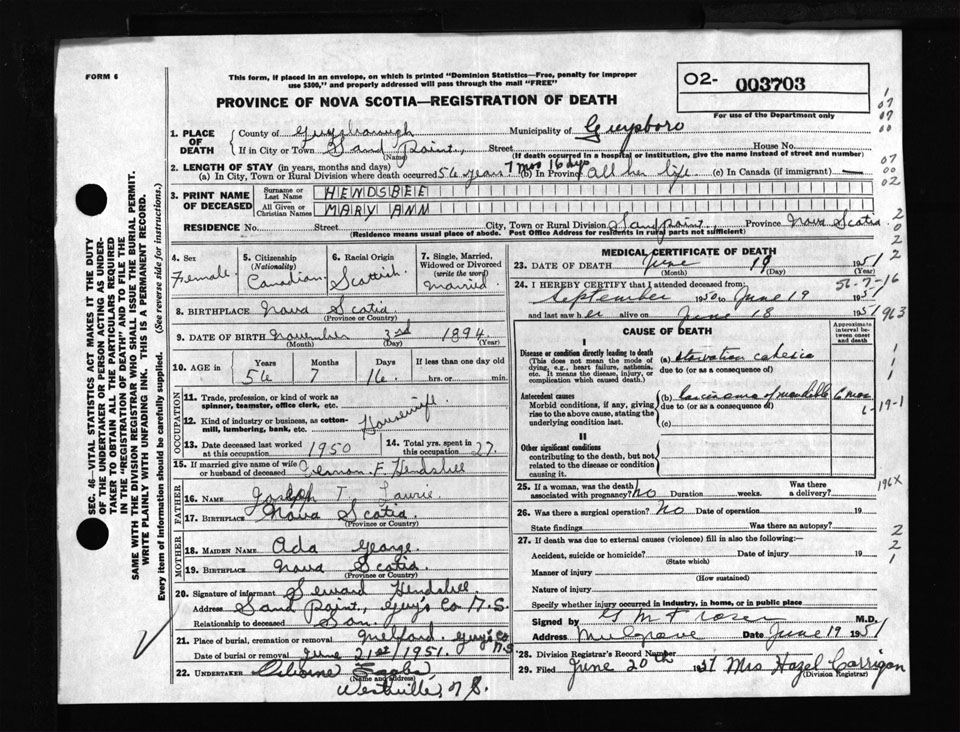 FORM 6
This form, if placed in an envelope, on which is printed "Dominion Statistics—Free, penalty for improper
use $300," and properly addressed will pass through the mail "FREE"
02- 003703
For use of the Department only
PROVINCE OF NOVA SCOTIA—REGISTRATION OF DEATH
1. PLACE OF DEATH
County of Guysborough Municipality of Guysboro
If in City or Town Sand Point, Street House No.
(Name) (If death occurred in a hospital or institution, give the name instead of street and number)
2. LENGTH OF STAY (in years, months and days)
(a) In City, Town or Rural Division where death occurred 56 years 7 mos 16 days (b) In Province all her life (c) In Canada (if immigrant) —
3. PRINT NAME OF DECEASED
Surname or Last Name HENDSBEE
All Given or Christian Names MARY ANN
RESIDENCE No. Street City, Town or Rural Division Sand point, Province Nova Scotia
(Residence means usual place of abode. Post Office Address for residents in rural parts not sufficient)
4. Sex Female
5. Citizenship (Nationality) Canadian
6. Racial Origin Scottish
7. Single, Married, Widowed or Divorced (write the word) Married
8. BIRTHPLACE Nova Scotia
(Province or Country)
9. DATE OF BIRTH November 3rd 1894
(Month) (Day) (Year)
10. AGE in Years Months Days If less than one day old
56 7 16 hrs. or min.
OCCUPATION
11. Trade, profession, or kind of work as spinner, teamster, office clerk, etc.
12. Kind of industry or business, as cotton-mill, lumbering, bank, etc. Housewife
13. Date deceased last worked at this occupation 1950
14. Total yrs. spent in this occupation 27
15. If married give name of wife or husband of deceased Vernon F. Hendsbee
FATHER
16. NAME Joseph T. Laurie
17. BIRTHPLACE Nova Scotia
(Province or Country)
MOTHER
18. MAIDEN NAME Ada George
19. BIRTHPLACE Nova Scotia
(Province or Country)
20. Signature of informant Seward Hendsbee
Address Sand Point, Guy's Co N.S.
Relationship to deceased Son
21. Place of burial, cremation or removal Milford Guy's Co N.S
Date of burial or removal June 21st 1951.
22. UNDERTAKER Osborne
(Name and address)
Westville, N.S.
MEDICAL CERTIFICATE OF DEATH
23. DATE OF DEATH June 19 1951
(Month) (Day) (Year)
24. I HEREBY CERTIFY that I attended deceased from:
September 1950 to June 19 1951
and last saw her alive on June 18 1951
56-7-16
963
CAUSE OF DEATH
Approximate interval between onset and death
I
Disease or condition directly leading to death
(This does not mean the mode of dying, e.g., heart failure, asthenia, etc. It means the disease, injury, or complication which caused death.)
(a) starvation
due to (or as a consequence of)
Antecedent causes
Morbid conditions, if any, giving rise to the above cause, stating the underlying condition last.
(b) carcinoma of mandible 6 mos
due to (or as a consequence of)
(c)
6-19-1
II
Other significant conditions
contributing to the death, but not related to the disease or condition causing it.
25. If a woman, was the death associated with pregnancy? no Duration weeks. Was there a delivery?
196X
26. Was there a surgical operation? No Date of operation 19
State findings Was there an autopsy?
27. If death was due to external causes (violence) fill in also the following:—
Accident, suicide or homicide? Date of injury 19
(State which)
Manner of injury
(How sustained)
Nature of injury
Specify whether injury occurred in industry, in home, or in public place
Signed by G M Fraser M.D.
Address Mulgrave Date June 19 1951
28. Division Registrar's Record Number
29. Filed June 20th 1951 Mrs Hazel Carrigan
(Division Registrar)
SEC. 46—VITAL STATISTICS ACT MAKES IT THE DUTY
OF THE UNDERTAKER OR PERSON ACTING AS UNDERTAKER TO OBTAIN ALL THE PARTICULARS REQUIRED
IN THE "REGISTRATION OF DEATH" AND TO FILE THE
SAME WITH THE DIVISION REGISTRAR WHO SHALL ISSUE THE BURIAL PERMIT.
WRITE PLAINLY WITH UNFADING INK. THIS IS A PERMANENT RECORD.
Every item of information should be carefully supplied. (See reverse side for instructions.)